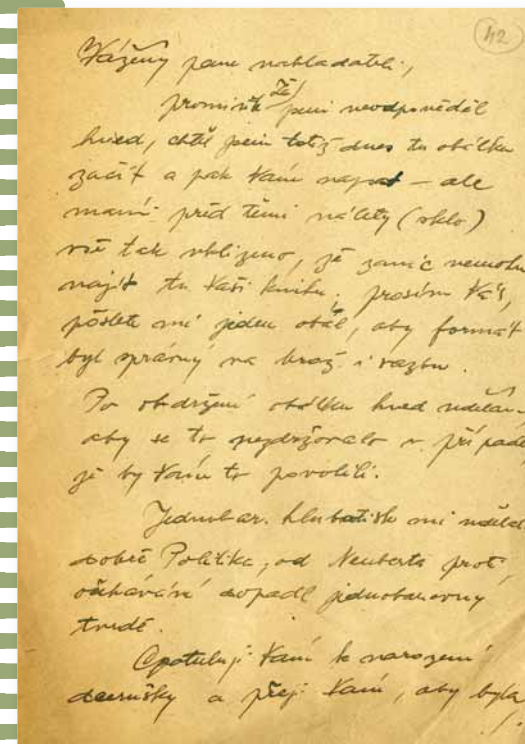 42
Vážený pane nakladateli,
že/
promiňte jsem neodpověděl
hned, chtěl jsem totiž dnes tu obálku
začít a pak Vám napsat – ale
mám před těmi nálety (sklo)
vše tak uklizeno, že zanic nemohu
najít tu Vaši knihu; prosím Vás,
pošlete mi jeden obál, aby formát
byl správný na brož i vazbu.
Po obdržení obálku hned udělám,
aby se to nezdržovalo v případě
že by Vám to povolili.
Jednobar. hlubotisk mi udělal
dobře Politika, od Neuberta proti
očekávání dopadl jednobarevný
tvrdě.
Gratuluji Vám k narození
dcerušky a přeji Vám, aby byla